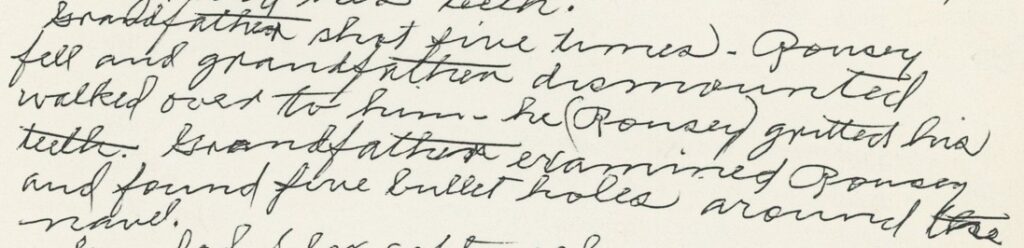 teeth.
Grandfather shot five times). Rousey
fell and grandfather dismounted
walked over to him - he (Rousey) gritted his
teeth. Grandfather examined Rousey
and found five bullet holes around
navel.